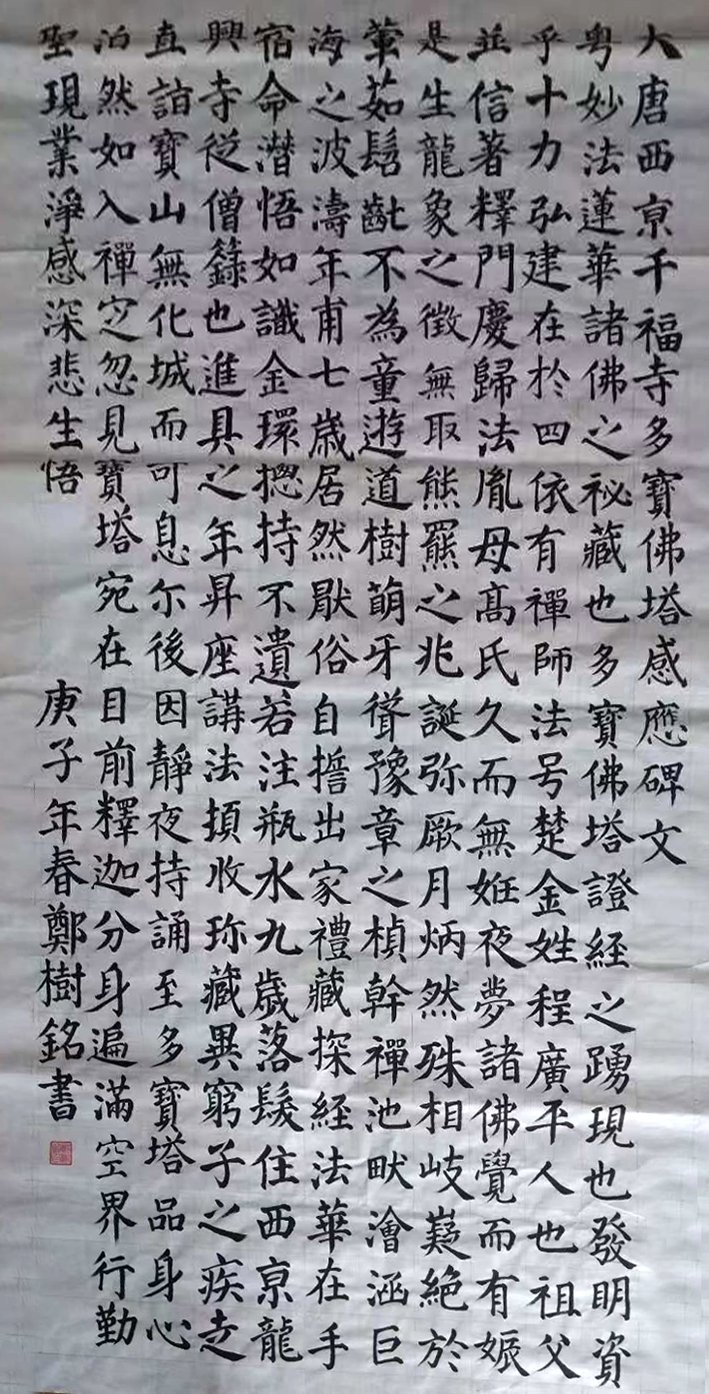 大唐西京千福寺多寶佛塔感應碑文
粤妙法蓮華諸佛之祕藏也多寶佛塔證経之踴現也發明資
乎十力弘建在於四依有禪師法号楚金姓程廣平人也祖父
並信著釋門慶歸法胤母高氏久而無姙夜夢諸佛覺而有娠
是生龍象之徵無取熊羆之兆誕弥厥月炳然殊相岐嶷絶於
葷茹髫齔不為童遊道樹萌牙聳豫章之楨幹禪池畎澮涵巨
海之波濤年甫七歲居然厭俗自擔出家禮藏探経法華在手
宿命潜悟如識金環摠持不遺若注瓶水九歲落髮住西京龍
興寺從僧籙也進具之年昇座講法頓收珎藏異窮子之疾走
直詣寶山無化城而可息尔後因靜夜持誦至多寶塔品身心
泊然如入禪定忽見寶塔宛在目前釋迦分身遍滿空界行勤
聖現業淨感深悲生悟
庚子年春鄭樹銘書